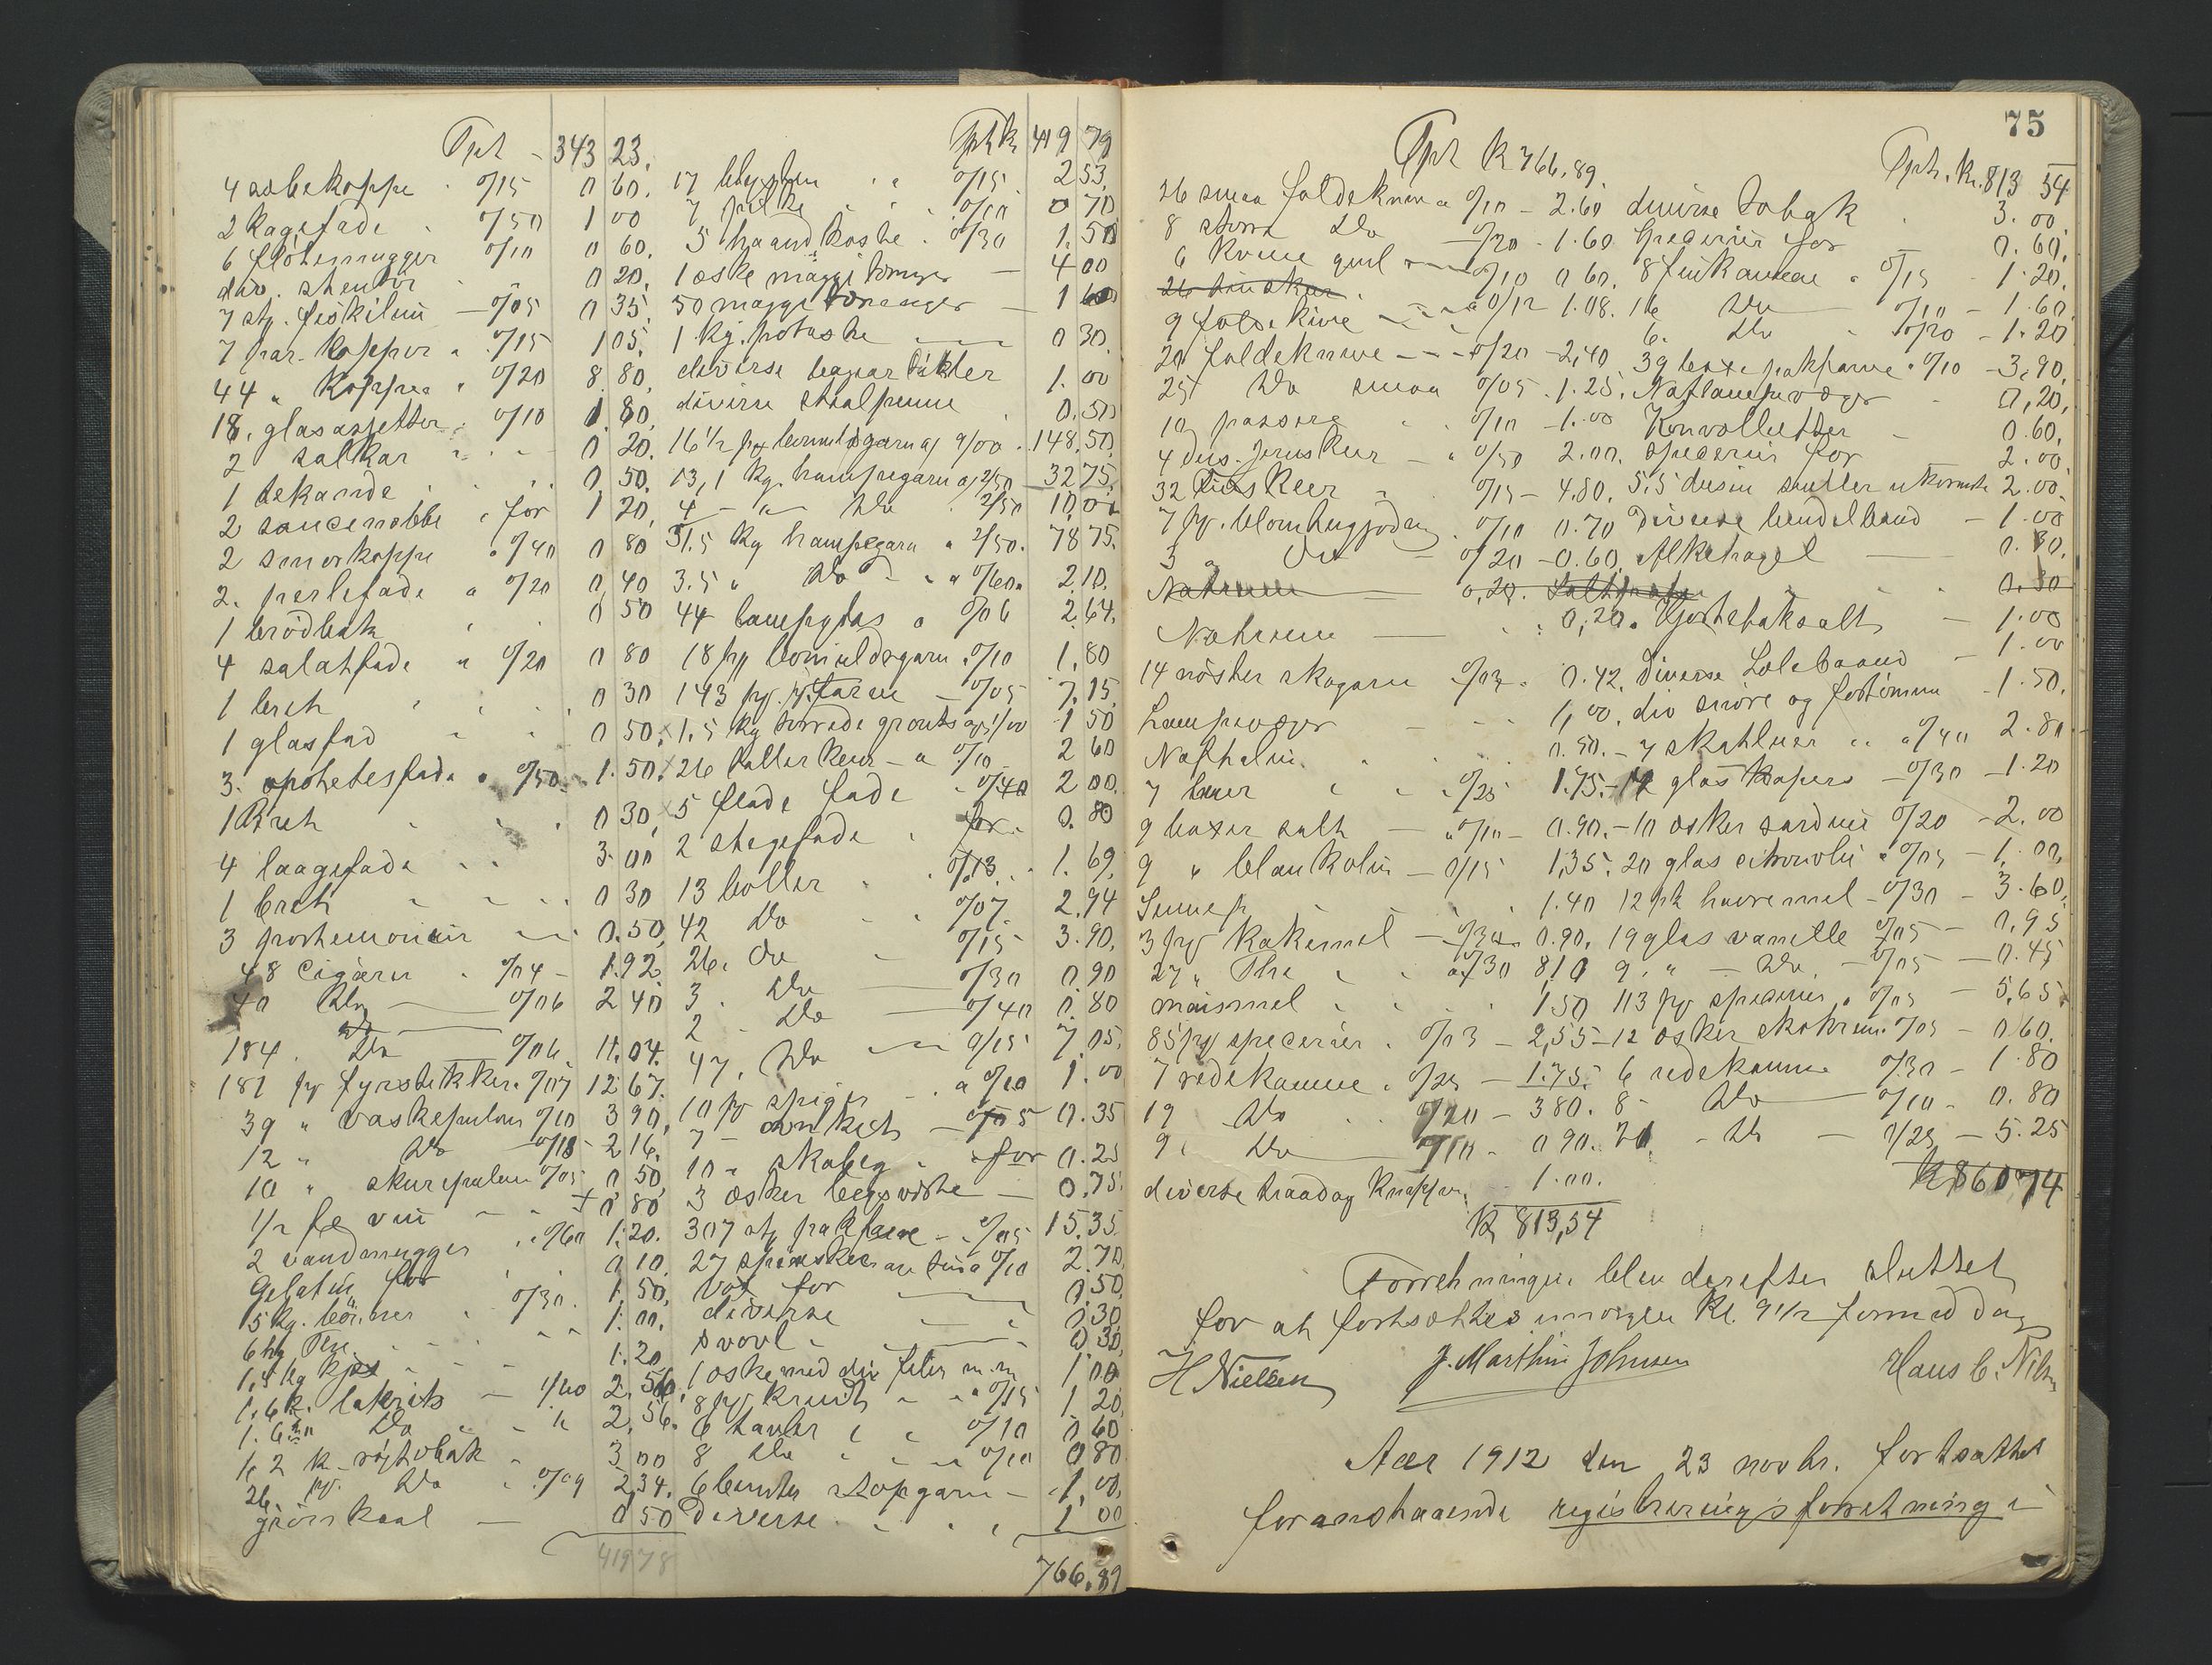 Tpt - 343 23.
4 sæbekoppe " 0/15 0 60.
2 kagefade . 0/50 1 00
6 flötemugger 0/10 0 60.
div. 0 20.
7 stk. fiskelim - 0/05 0 35.
7 par. kopper a 0/15 1 05.
44 " kopper " 0/20 8 80.
18. glasasjetter 0/10 1 80.
2 saltkar " " 0 20.
1 tekande " 0 50.
2 saucenebbe " for 1 20.
2 smørkoppe a 0/40 0 80
2. perlefade a 0/20 0 40
1 brödbak 0 50
4 salatfade a 0/20 0 80
1 bret 0 30
1 glasfad " 0 50.
3. apothekesfade a 0/50. 1.50.
1 Bret 0 30.
4 laagefade " 3.00
1 bret 0 30
3 portemonnaier 0.50
48 Cigarer . 0/04 - 1.92
40 Do - 0/06 2 40
184. Do - 0/06 11.04.
181 pk fyrstikker. 0/07 12 67.
39 " vaskepulver 0/10 3 90.
12 " Do - 0/18 2 16.
10 " skurepulver 0/05 0 50
1/2 fl vin - - + 0 80
2 vandmugger " 0/60 1.20.
Gelatin for 0 10.
5 kg. bönner 0/30. 1.50.
6 hg The 1.00.
1.20
1.6 k. lakrits - 1/60 2.56.
1.6 " Do " - " 2.56.
1,2 k røgtobak 3 00
26 pk. Do " 0/09 2.34.
grönkaal - 0 50
41978
Tpt kr 419 79
17 " " 0/15. 2 53.
7 " " 0/10 0 70.
5 haandkoste . 0/30 1.50
1 æske maggi - 4 00
50 maggi - 1 60
1 kg. potaske - 0 30.
diverse 1.00
diverse staalpenne 0.50
16 1/2 pk bomuldsgarn a 9/00 . 148.50.
13,1 kg. hampegarn a 2/50 - 32 75.
4 - " - Do . 2/50 10.00
31.5 kg hampegarn a 2/50. 78 75.
3.5 " Do - " a 0/60 2.10.
44 lampeglas a 0/06 2.64.
18 pk bomuldsgarn a 0/10 1.80
143 pk farve - 0/05 7.15.
1.5 kg a 1/00 1 50
26 tallerkener - a 0/10 2 60
5 flade fade " 0/40 2 00.
2 stegefade . for. 0.80
13 boller . 0/13. . 1.69.
42 Do " 0/07. 2.94
26. Do - 0/15 3.90.
3. Do - 0/30 0.90
2 - Do - 0/40 0.80
47. Do - 0/15 7.05.
10 pk spiger - a 0/10 1.00
7 - - 0/05 0.35
10 " skobeg . for 0.25
3 æsker - 0.75.
307 stk pakfarve - 0/05 15.35.
27 a 0/10 2.70.
Vox for - 0.50.
diverse - 0.30.
svovl - 0.30.
1 æske med div filer m.m 1.00
8 pk krudt - " 0/15 1.20.
6 tavler " " 0/10 0.60
8 Do " " 0/10 0 80
6 bundter stopgarn - 1.00.
Diverse " " " 1 00
766.89
75
Tpt k 766.89.
26 smaa foldeknive a 0/10 - 2.60
8 store Do - 0/20 - 1.60
6 - 0/10 0 60.
26
9 - a 0/12 1.08.
20 foldeknive - 0/20 - 2,40
25 Do smaa 0/05 . 1.25.
10 passere 0/10 - 1.00
4 dus. - " 0/50 2.00.
32 " 0/15 - 4.80.
7 pk. blomstergjödn . 0/10 0.70
3 " Do - 0/20 - 0.60.
Natrium - 0.20.
Natrium - 0,20.
14 nøster skogarn 0/03. 0.42.
Lampevæger - 1,00.
Naftalin. 0.50.
7 " 0/25 1.75.
9 baxer salt - " 0/10 - 0.90.
9 " blankolin - 0/15 1,35.
Sennep . 1.40
3 pk kakemel - 0/30. 0.90.
27 " The " " a 0/30 8,10
maismel . 1 50
85 pk specerier . 0/03 - 2,55
7 redekamme . 0/25 - 1.75.
19 Do . 0/20 - 3 80.
9. Do - 0/10 - 0 90.
diverse traad og knapper. 1.00.
K 813,54
Tpt. kr. 813 54
diverse tobak . 3.00.
Specerier for - 0.60.
8 finkamme a 0/15 - 1.20.
16 Do - 0/10 - 1.60.
6. Do - 0/20 - 1.20
39 boxe pakfarve a 0/10 - 3,90.
Natlampevæger - 0,20.
Konvolutter - 0.60.
specerier for 2.00
5.5 dusin 2.00.
Diverse bendelbaand - 1.00
Alkehagel - 0.80.
0.30
Hjortetaksalt - 1.00
diverse - 1.00
div snøre og - 1.50.
7 " a 0/40 2.80
4 glas kapers - 0/30 - 1.20
10 æsker sardiner 0/20 - 2.00
20 glas citronolie a 0/05 - 1.00.
12 pk havremel - 0/30 - 3.60.
19 glas vanille 0/05 - 0.95
9 " - Do. - 0/05 - 0.45
113 pk specerier a 0/05 - 5.65.
12 æsker skokrem. 0/05 - 0.60.
6 redekamme 0/30 - 1.80
8 - Do - 0/10 - 0.80
21 - Do - 0/25 - 5.25
K 860 74
Forretningen blev derefter sluttet
for at fortsættes imorgen kl. 9 1/2 formiddag
H Nielsen J. Marthin Johnsen Hans C. Nils
Aar 1912 den 23 novbr. fortsattes
foranstaaende registreringsforretning i